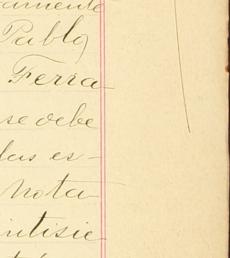 amente
Pablo
Ferra-
se debe
las es-
Nota-
intisie